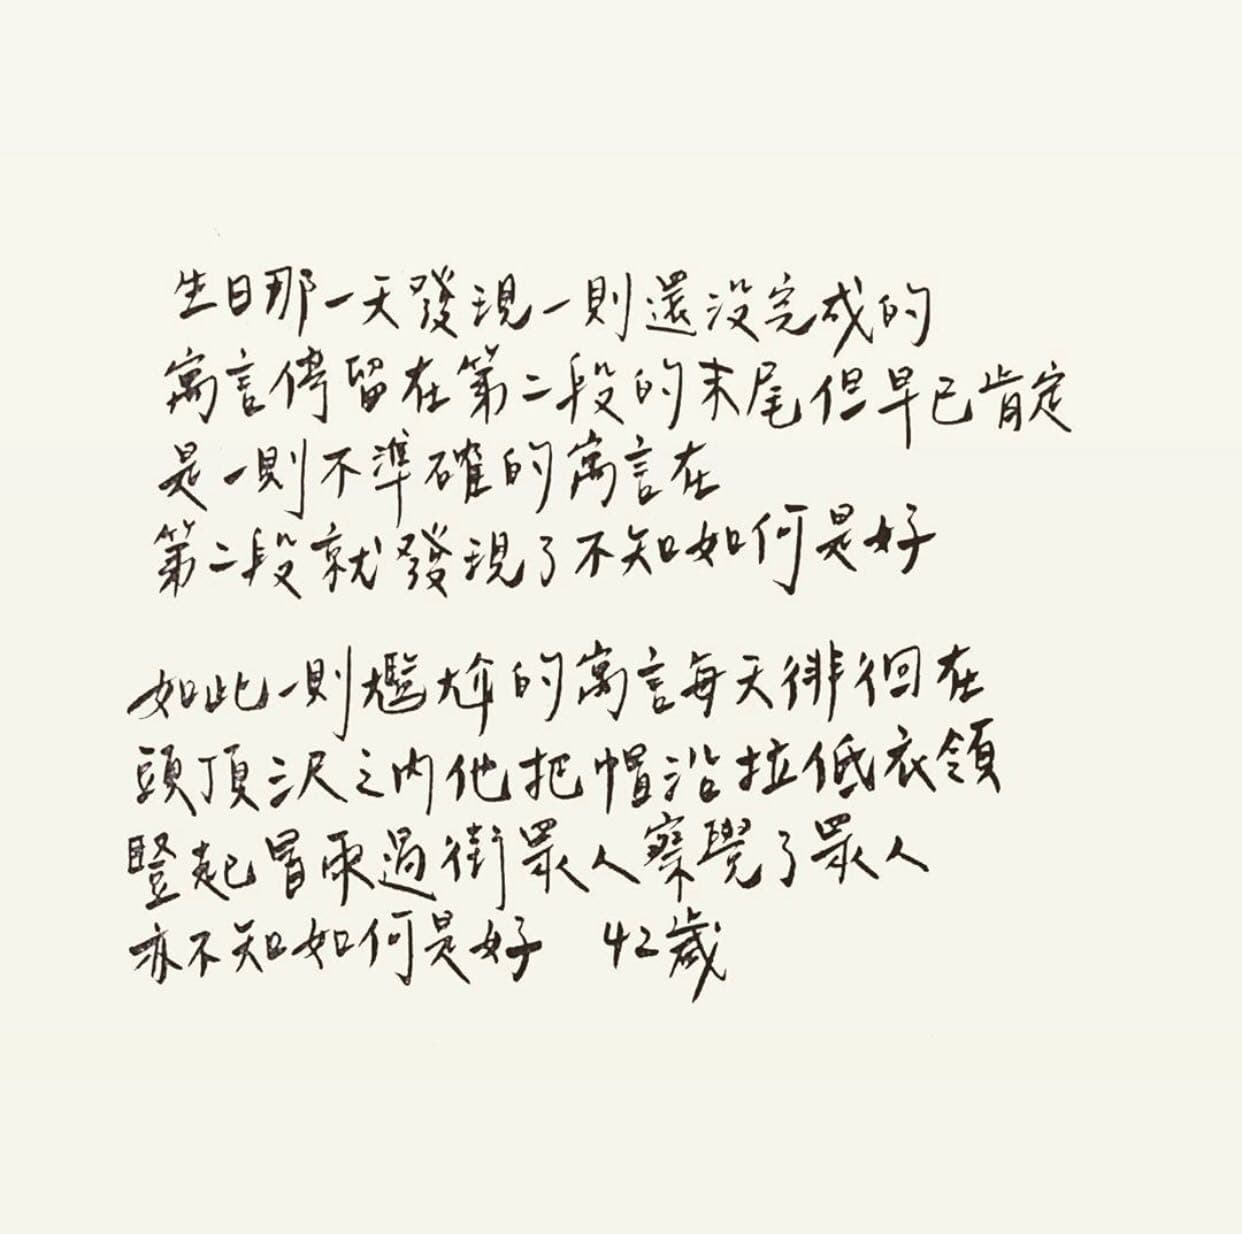 生日那一天發現一則還沒完成的
寓言停留在第二段的末尾但早已肯定
是一則不準確的寓言在
第二段就發現了不知如何是好
如此一則尷尬的寓言每天徘徊在
頭頂三尺之內他把帽沿拉低衣領
豎起冒雨過街眾人察覺了眾人
亦不知如何是好 42歲